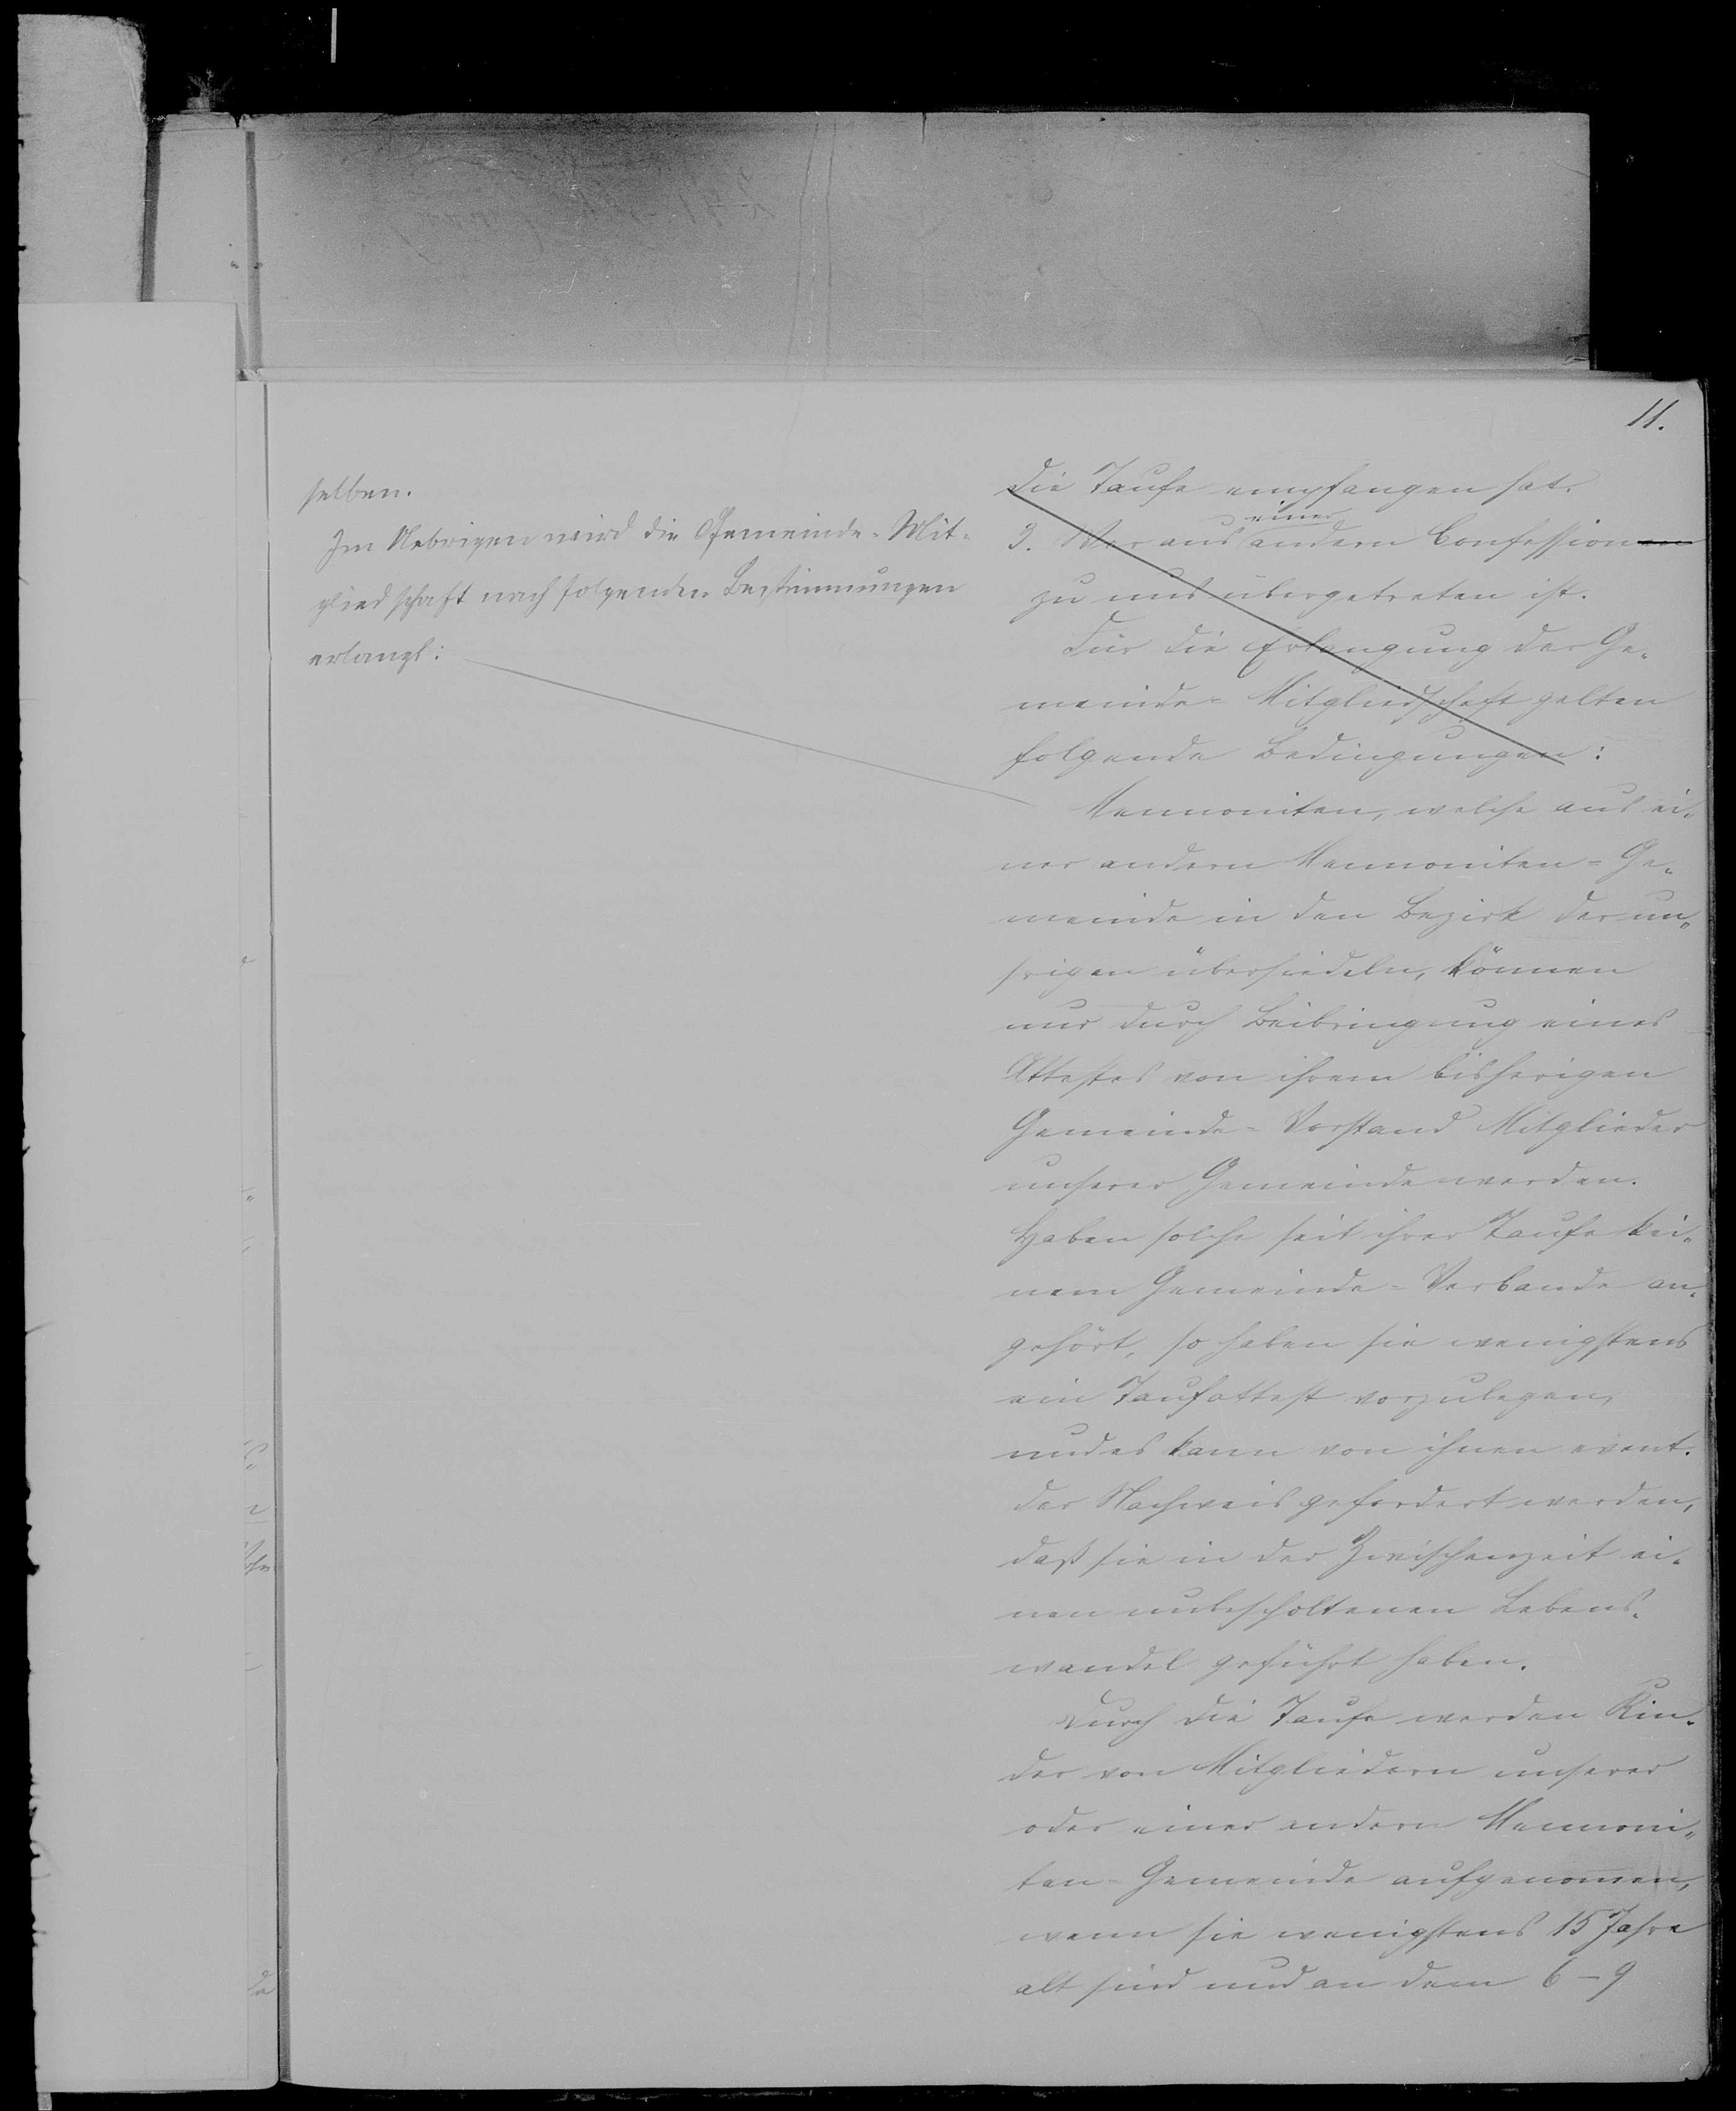 11.
selben.
Im Uebrigen wird die Gemeinde-Mit-
gliedschaft nach folgenden Bestimmungen
erlangt:
die Taufe empfangen hat.
3. Wer aus einer andern Confessionen
zu uns übergetreten ist.
Für die Erlangung der Ge-
meinde-Mitgliedschaft gelten
folgende Bedingungen:
Mennoniten, welche aus ei-
ner andern Mennoniten-Ge-
meinde in den Bezirk der un-
srigen übersiedeln, können
nur durch Beibringung eines
Attestes von ihrem bisherigen
Gemeinde-Vorstand Mitglieder
unserer Gemeinde werden.
Haben solche seit ihrer Taufe kei-
nem Gemeinde-Verbande an-
gehört, so haben sie wenigstens
ein Taufattest vorzulegen,
und es kann von ihnen event.
der Nachweis gefordert werden,
daß sie in der Zwischenzeit ei-
nen unbescholtenen Lebens-
wandel geführt haben.
Durch die Taufe werden Kin-
der von Mitgliedern unserer
oder einer andern Mennoni-
ten-Gemeinde aufgenommen,
wenn sie wenigstens 15 Jahre
alt sind und an dem 6-9